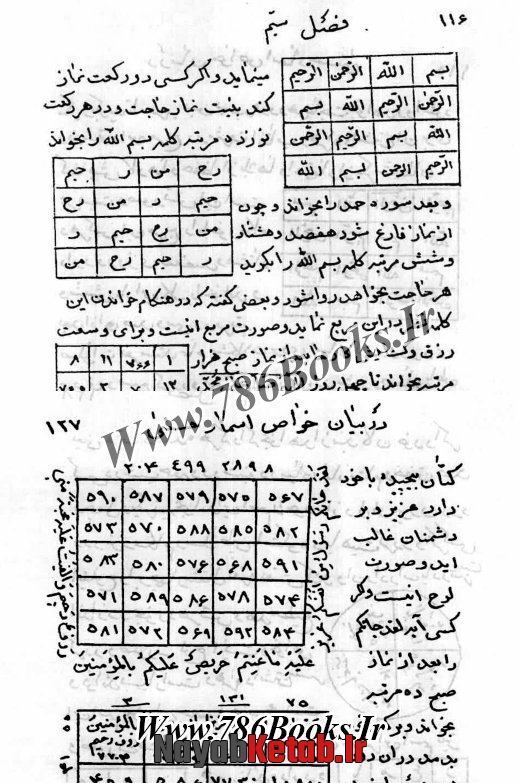 ۱۱۶
فصل ستیم
مینماید و اگر کسی دو رکعت نماز
کند بنیت نماز حاجت و در هر رکعت
نوزده مرتبه کلمه بسم الله را بخواند
بسم الله الرحمن الرحیم
الرحمن الرحیم الله بسم
الله بسم الرحیم الرحمن
الرحیم الرحمن بسم الله
و بعد سوره حمد را بخواند و چون
از نماز فارغ شود هفصد و هشتاد
و شش مرتبه کلمه بسم الله را بگوید
رح من ر حیم
حیم ر من رح
من رح حیم ر
ر حیم رح من
هر حاجت بخواهد روا شود و بعضی گفته که در هنگام خواندن این
در این مربع نماید و صورت مربع اینست و برای وسعت
رزق از نماز صبح هزار
مرتبه بخواند تا چهل روز
۱ ۷۶۶ ۱۱ ۸
۱۲ ۷ ۲
در بیان خواص اسماء
۱۲۷
کتان پیچیده با خود
دارد عزیز و بر
دشمنان غالب
اید و صورت
لوح اینست و اگر
کسی آیه لقد جائکم
را بعد از نماز
صبح ده مرتبه
بخواند
۲۰۴ ۴۹۹ ۲۸۹۸
۵۹۰ ۵۸۷ ۵۷۹ ۵۷۵ ۵۶۷
۵۷۳ ۵۷۰ ۵۸۸ ۵۸۵ ۵۸۲
۵۸۳ ۵۸۰ ۵۷۶ ۵۶۸ ۵۹۱
۵۷۱ ۵۸۹ ۵۸۶ ۵۷۸ ۵۷۴
۵۸۱ ۵۷۲ ۵۶۹ ۵۹۲ ۵۸۴
علیه ما عنتم حریص علیکم بالمؤمنین
۳ ۱۳۱ ۷۵
بالمؤمنین
رؤف رحیم
www.786Books.Ir
www.786Books.Ir
NayabKetab.Ir